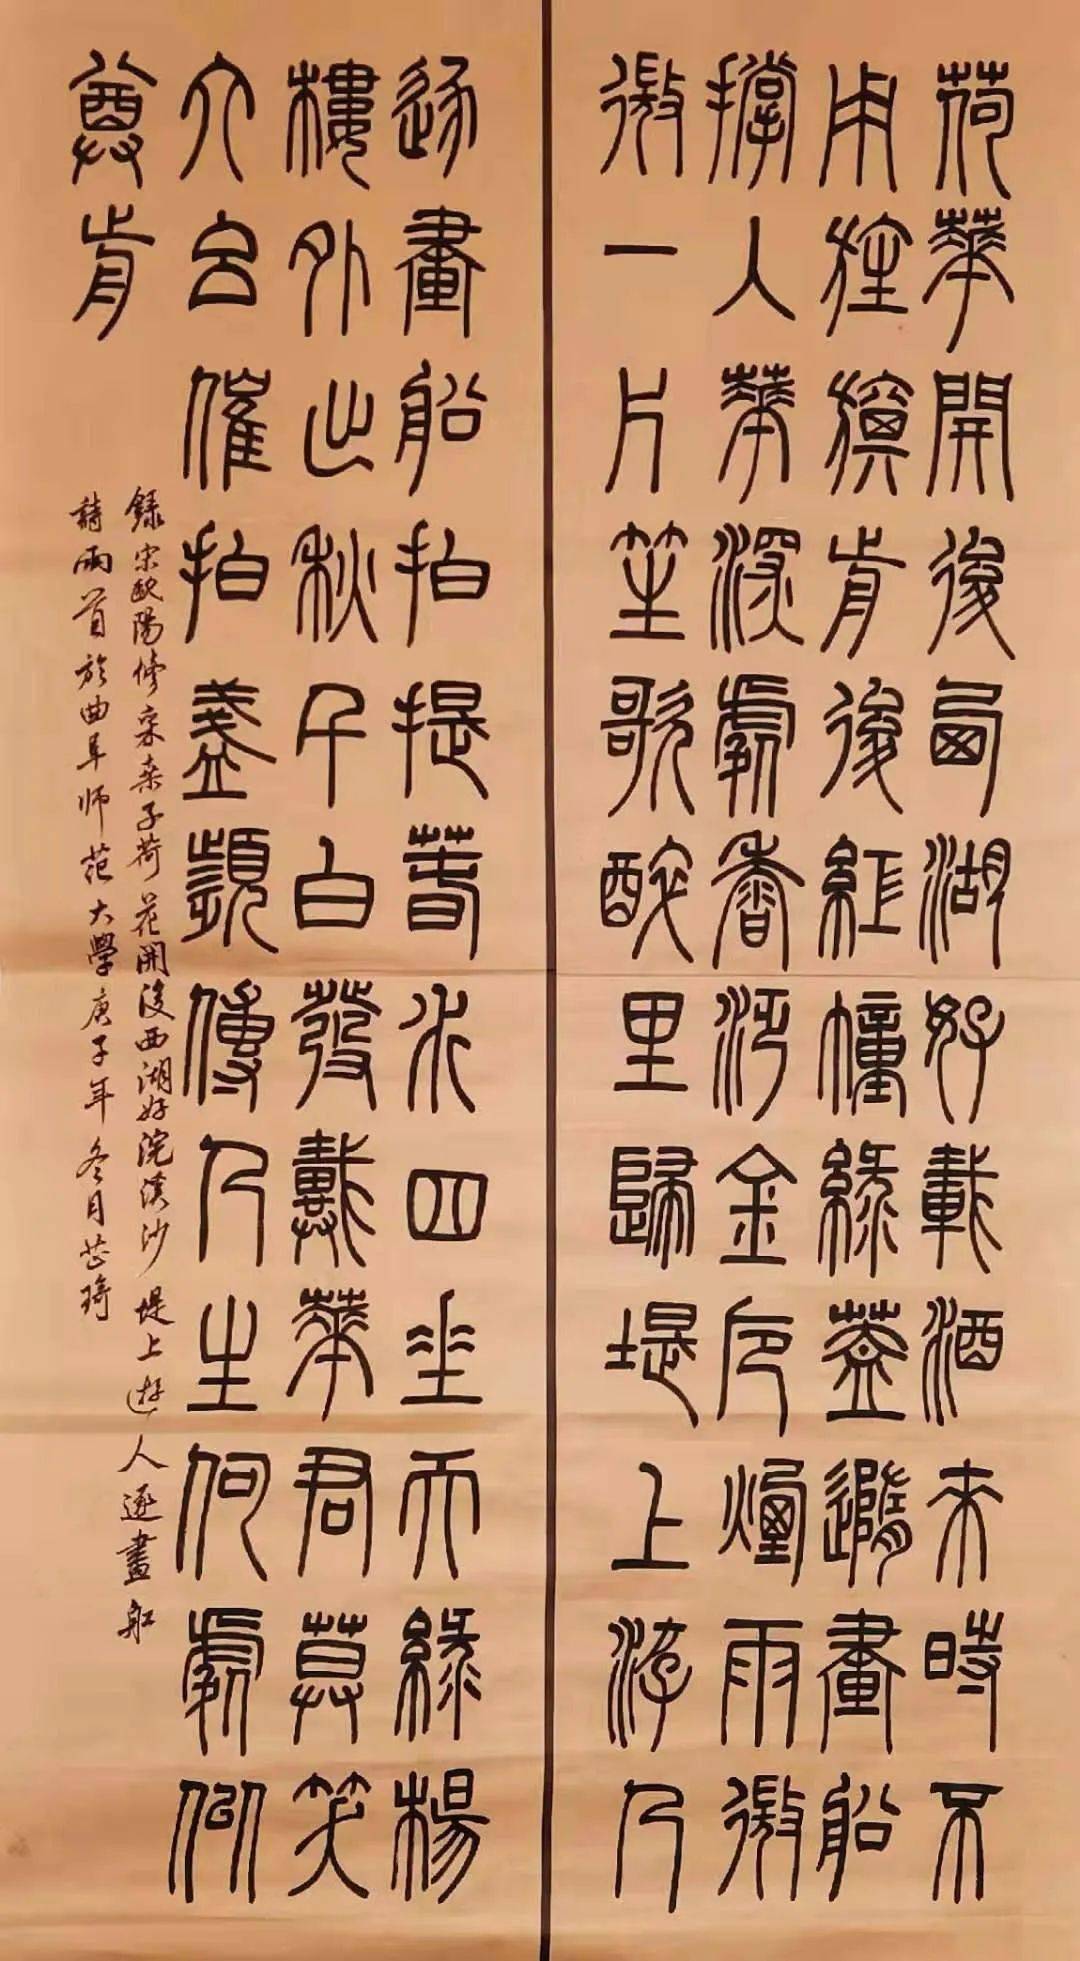 荷華開後西湖好載酒來時不
用旌旗前後紅幢綠蓋隨畫船
撐入華深處香泛金卮煙雨微
微一片笙歌醉里歸堤上游人
逐畫船拍提春水四垂天綠楊
樓外出秋千白發戴華君莫笑
六幺催拍盞頻傳人生何處似
尊前
錄宋歐陽修采桑子荷花開後西湖好浣溪沙堤上遊人逐畫船
詩兩首於曲阜師范大學庚子年冬月芷琦